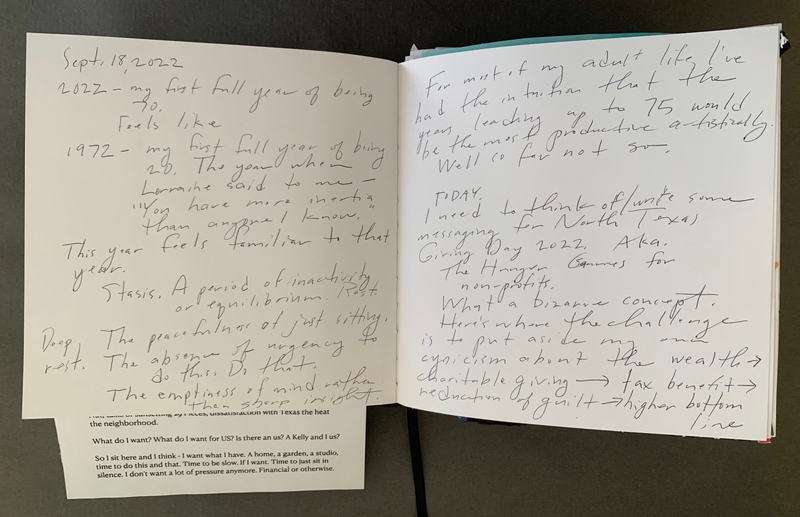 Sept. 18, 2022
2022 – my first full year of being
70.
Feels like
1972 – my first full year of being
20. The year when
Lorraine said to me –
"You have more inertia
than anyone I know."
This year feels familiar to that
year.
Stasis. A period of inactivity
or equilibrium. Rest.
Deep rest.
The peacefulness of just sitting.
The absence of urgency to
do this. Do that.
The emptiness of mind rather
than sharp insight.
the neighborhood.
What do I want? What do I want for US? Is there an us? A Kelly and I us?
So I sit here and I think - I want what I have. A home, a garden, a studio,
time to do this and that. Time to be slow. If I want. Time to just sit in
silence. I don't want a lot of pressure anymore. Financial or otherwise.
For most of my adult life I've
had the intuition that the
years leading up to 75 would
be the most productive artistically.
Well so far not so.
TODAY.
I need to think of/write some
messaging for North Texas
Giving Day 2022. Aka.
The Hunger Games for
non-profits.
What a bizarre concept.
Here's where the challenge
is to put aside my own
cynicism about the wealth →
charitable giving → tax benefit →
reduction of guilt → higher bottom
line